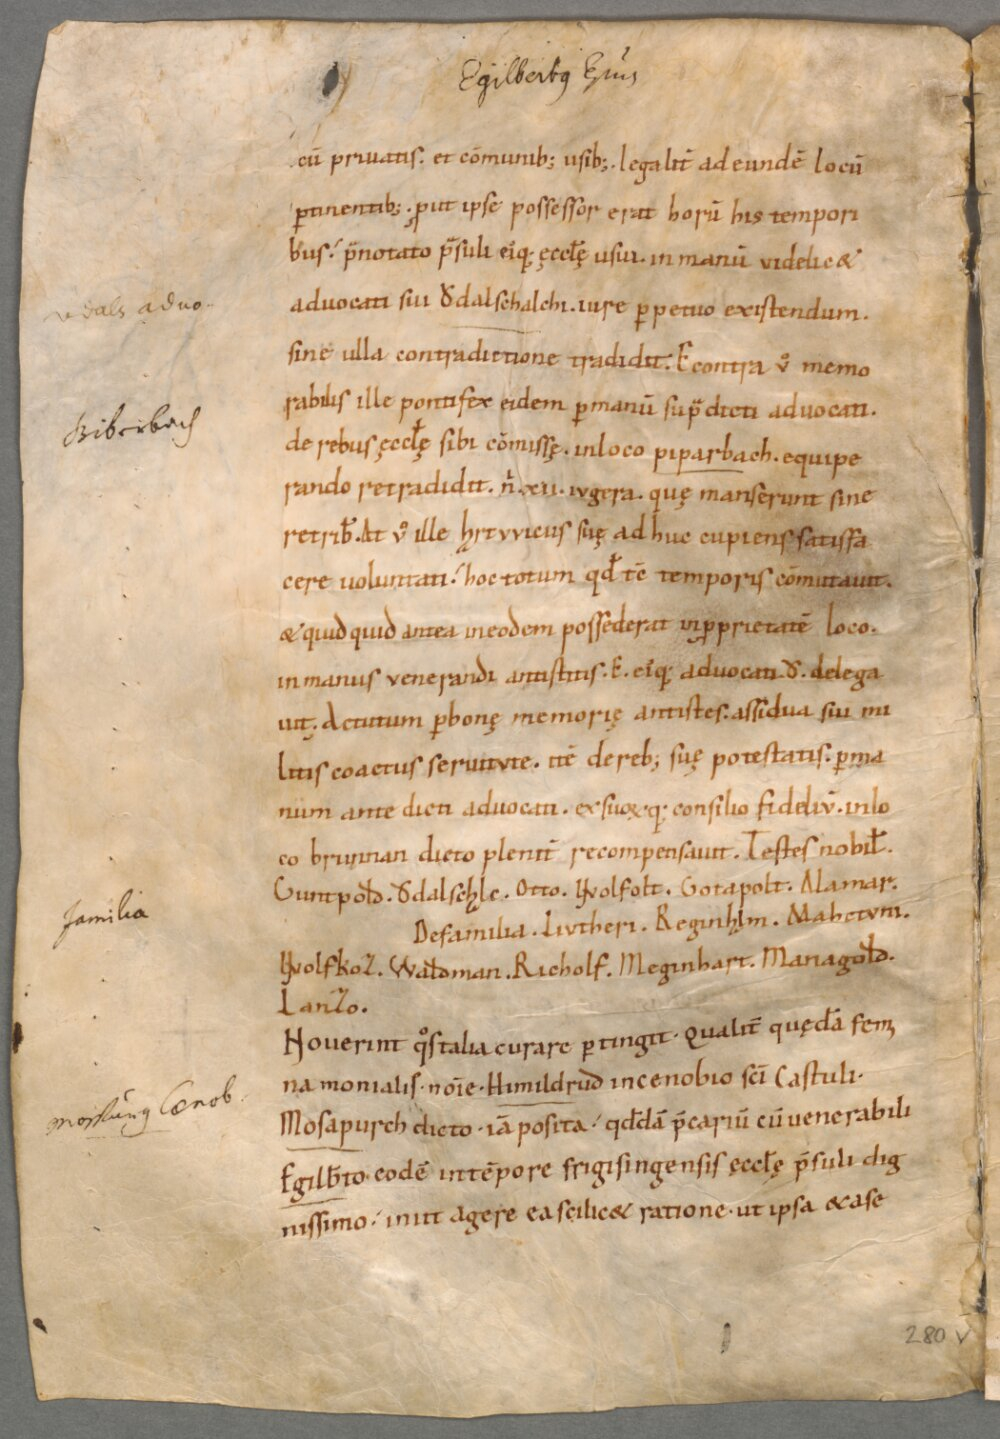 Egilbertus Epus
cū priuatis. et cōmunib; usib;. legalit̄ ad eundē locū
ꝑtinentib;. ꝓut ipse possessor erat horū his tempori
bus. p̄notato p̄suli eiq; ęccłę usui. in manū videlic&
udals aduo.
aduocati sui Ŏdalschalchi. iure ꝑpetuo existendum.
sine ulla contradictione tradidit. Econtra v̊ memo
rabilis ille pontifex eidem ꝑ manū sup̄dicti aduocati.
Biberbach
de rebus ęccłę sibi cōmissę. in loco piparbach. equipe
rando retradidit. n̄. xii. iugera. quę manserunt sine
retrib̄. At v̊ ille hrtvvicus suę ad huc cupiens satisfa
cere uoluntati. hoc totum qđ tc̄ temporis cōmutauit.
& quid quid antea in eodem possederat in ꝓprietatē loco.
in manus venerandi antistitis. E. eiq; aduocati Ŏ. delega
uit. Actutum ꝑbonę memorię antistes. assidua sui mi
litis coactus seruitute. itē de reb; suę potestatis. ꝑ ma
num ante dicti aduocati. ex suo&q; consilio fideliū. in lo
co brunnan dicto plenit̄ recompensauit. Testes nobił.
Cuntpołd. Ŏdalschlc. Otto. Wolfolt. Gotapolt. Alamar.
familia
De familia. Liutheri. Reginhlm. Mahtuni.
Wolfkoz. Wałdman. Richolf. Meginhart. Managołd.
Lanzo.
Nouerint q̊s talia curare ꝑtingit. qualit̄ quędā femi
na monialis. noīe. Himildrud in cenobio sc̄i Castuli.
Mospurg Cœnob.
Mosapurch dicto. iā posita. qđdā p̄cariū cū venerabili
Egilb̄to. eodē intēpore frigisingensis ęccłę p̄suli dig
nissimo. iniit agere ea scilic& ratione. ut ipsa & ase
280 v